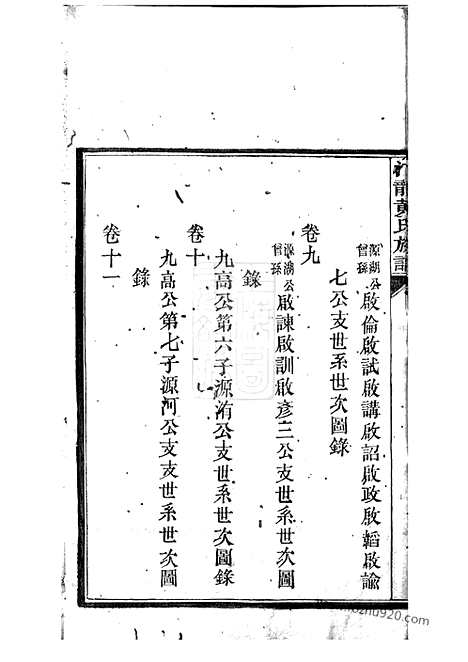 龍黃氏族譜
源湖公曾孫啟倫啟試啟講啟詔啟政啟韜啟諭
七公支世系世次圖錄
卷九
源湖公曾孫啟諫啟訓啟彥三公支世系世次圖
錄
九高公第六子源洧公支世系世次圖錄
卷十
九高公第七子源河公支支世系世次圖
錄
卷十一
zhu920.com